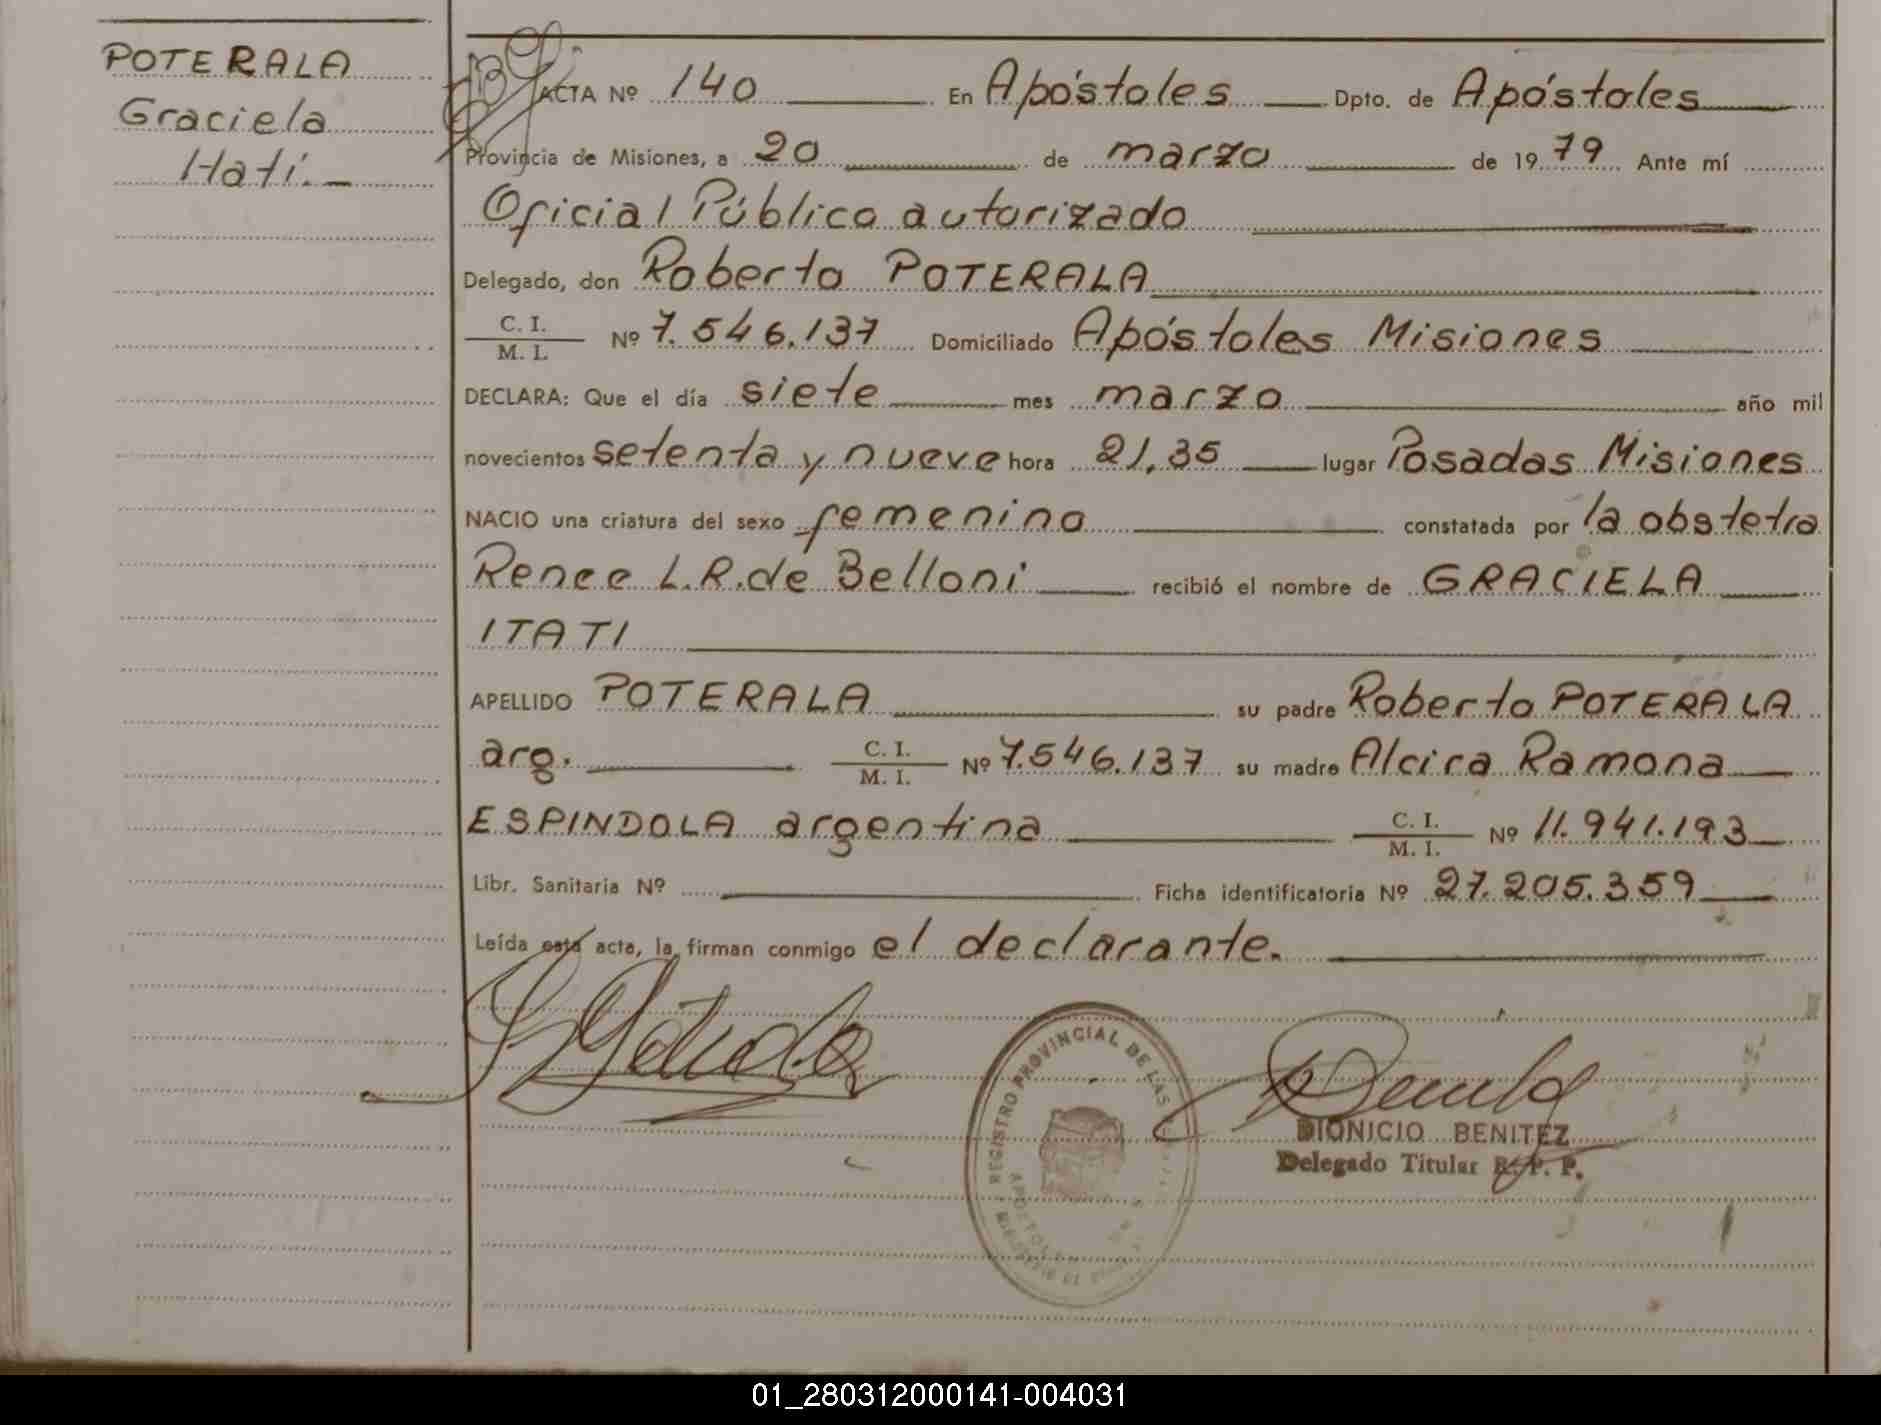 POTERALA
Graciela
Itatí.-
ACTA Nº 140 En Apóstoles Dpto. de Apóstoles
Provincia de Misiones, a 20 de marzo de 1979 Ante mí
Oficial Público autorizado
Delegado, don Roberto POTERALA
C. I.
M. I. Nº 7.546.137 Domiciliado Apóstoles Misiones
DECLARA: Que el día siete mes marzo año mil
novecientos setenta y nueve hora 21,35 lugar Posadas Misiones
NACIO una criatura del sexo femenino constatada por la obstetra
Renee L.R. de Belloni recibió el nombre de GRACIELA
ITATI
APELLIDO POTERALA su padre Roberto POTERALA
arg. C. I.
M. I. Nº 7.546.137 su madre Alcira Ramona
ESPINDOLA argentina C. I.
M. I. Nº 11.941.193
Libr. Sanitaria Nº Ficha identificatoria Nº 27.205.359
Leída esta acta, la firman conmigo el declarante.
REGISTRO PROVINCIAL DE LAS
APOSTOLES
DIONICIO BENITEZ
Delegado Titular R. P. P.
01_280312000141-004031